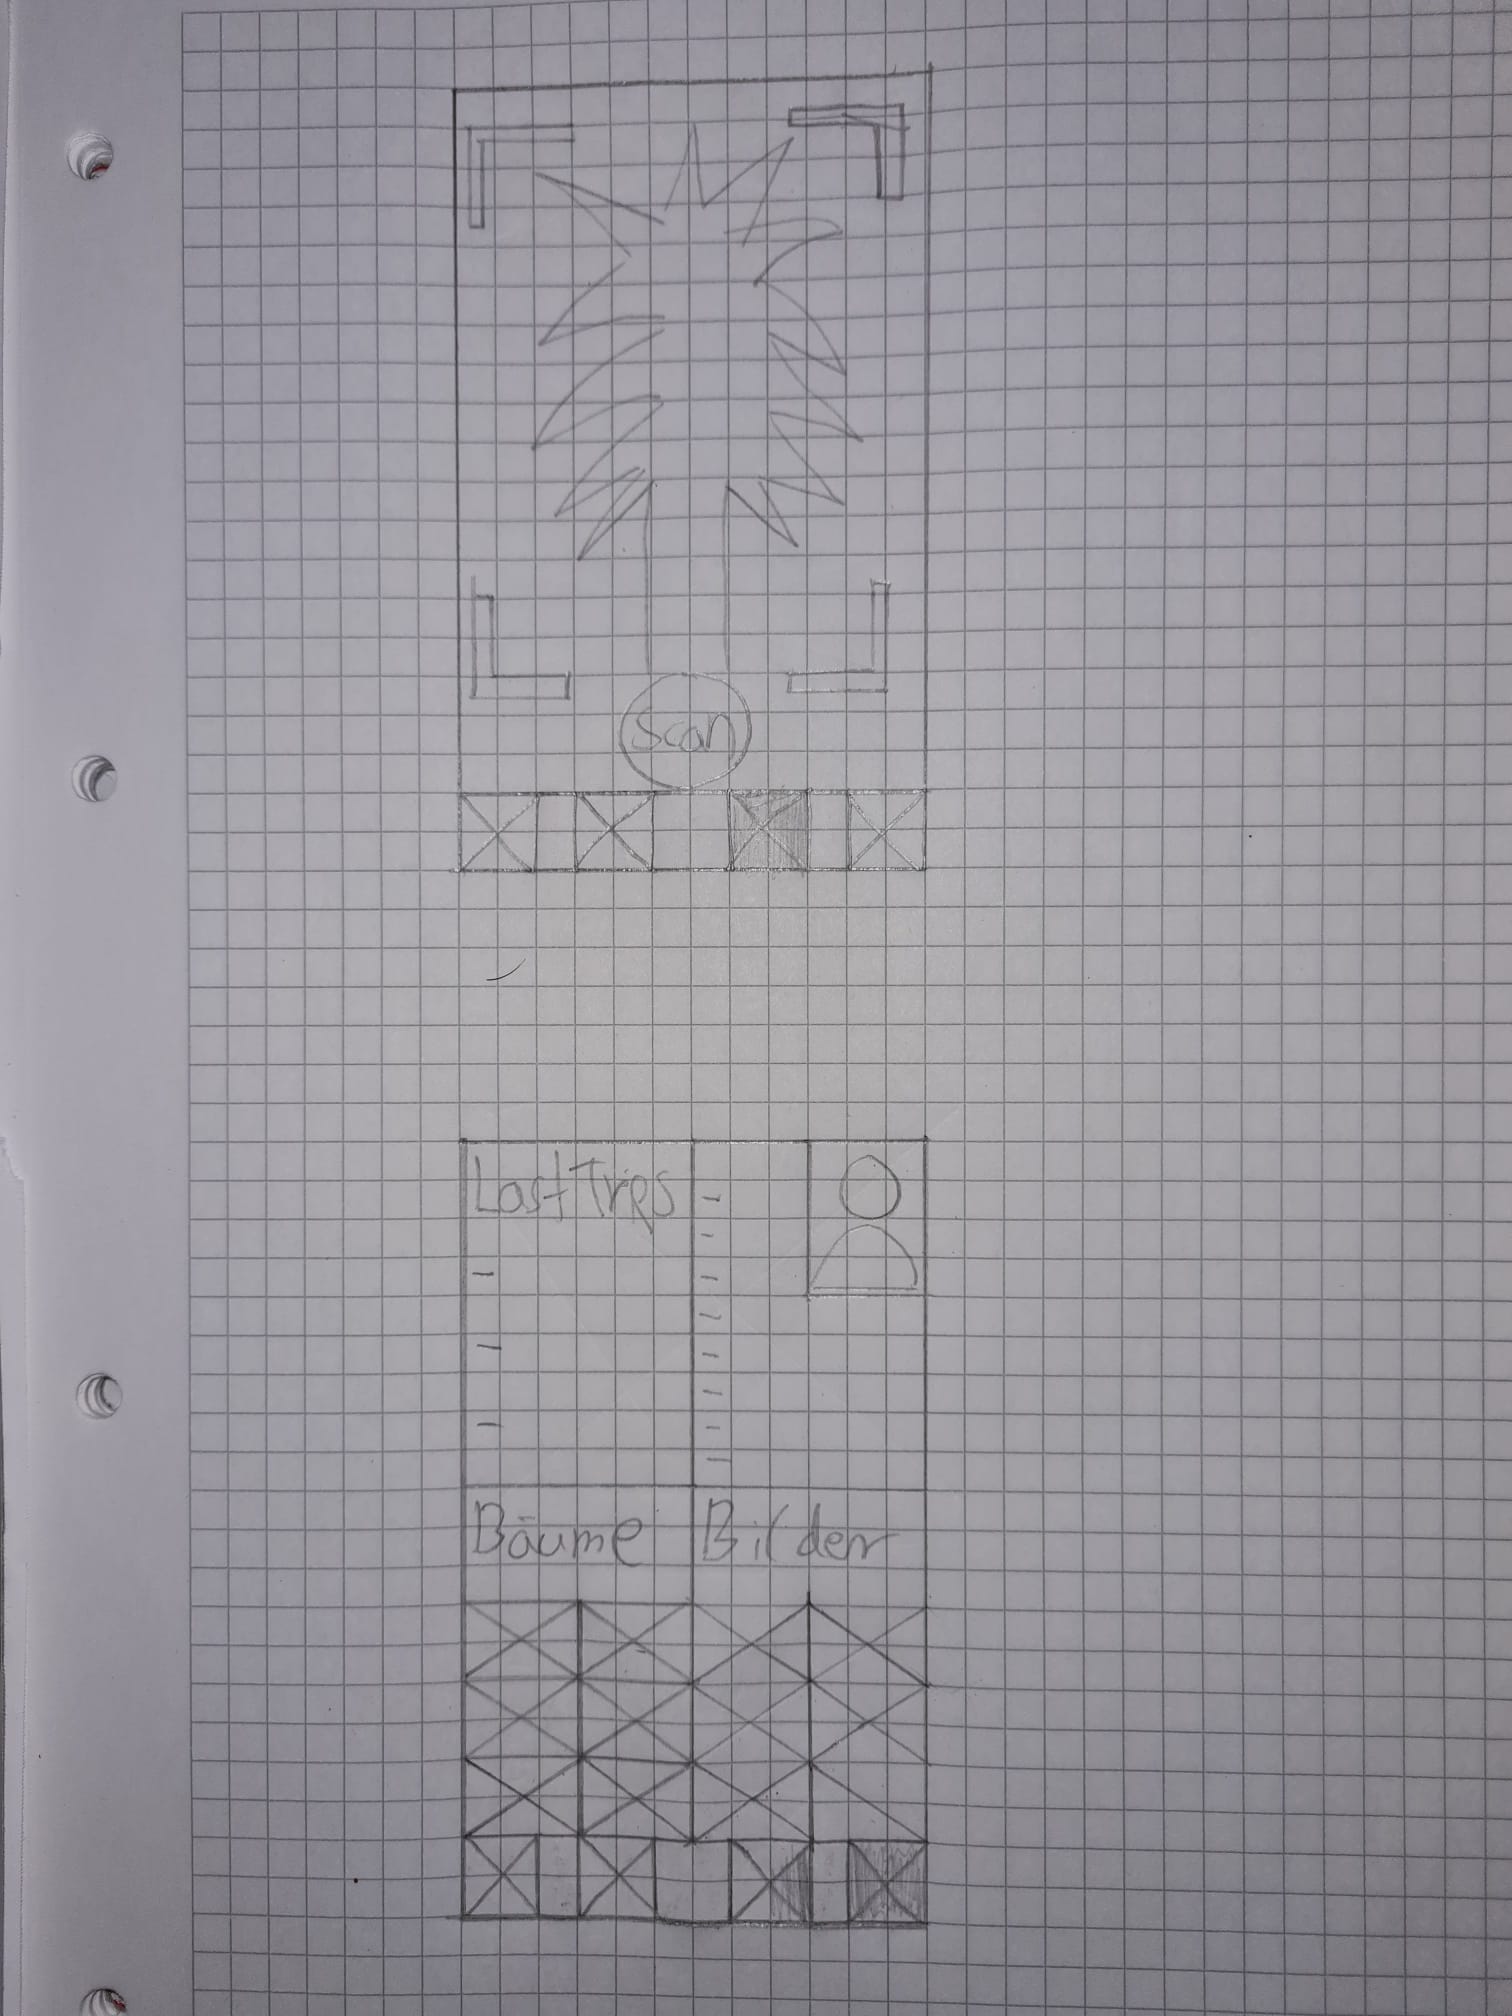 Scan
Last Trips
Bäume
Bilder